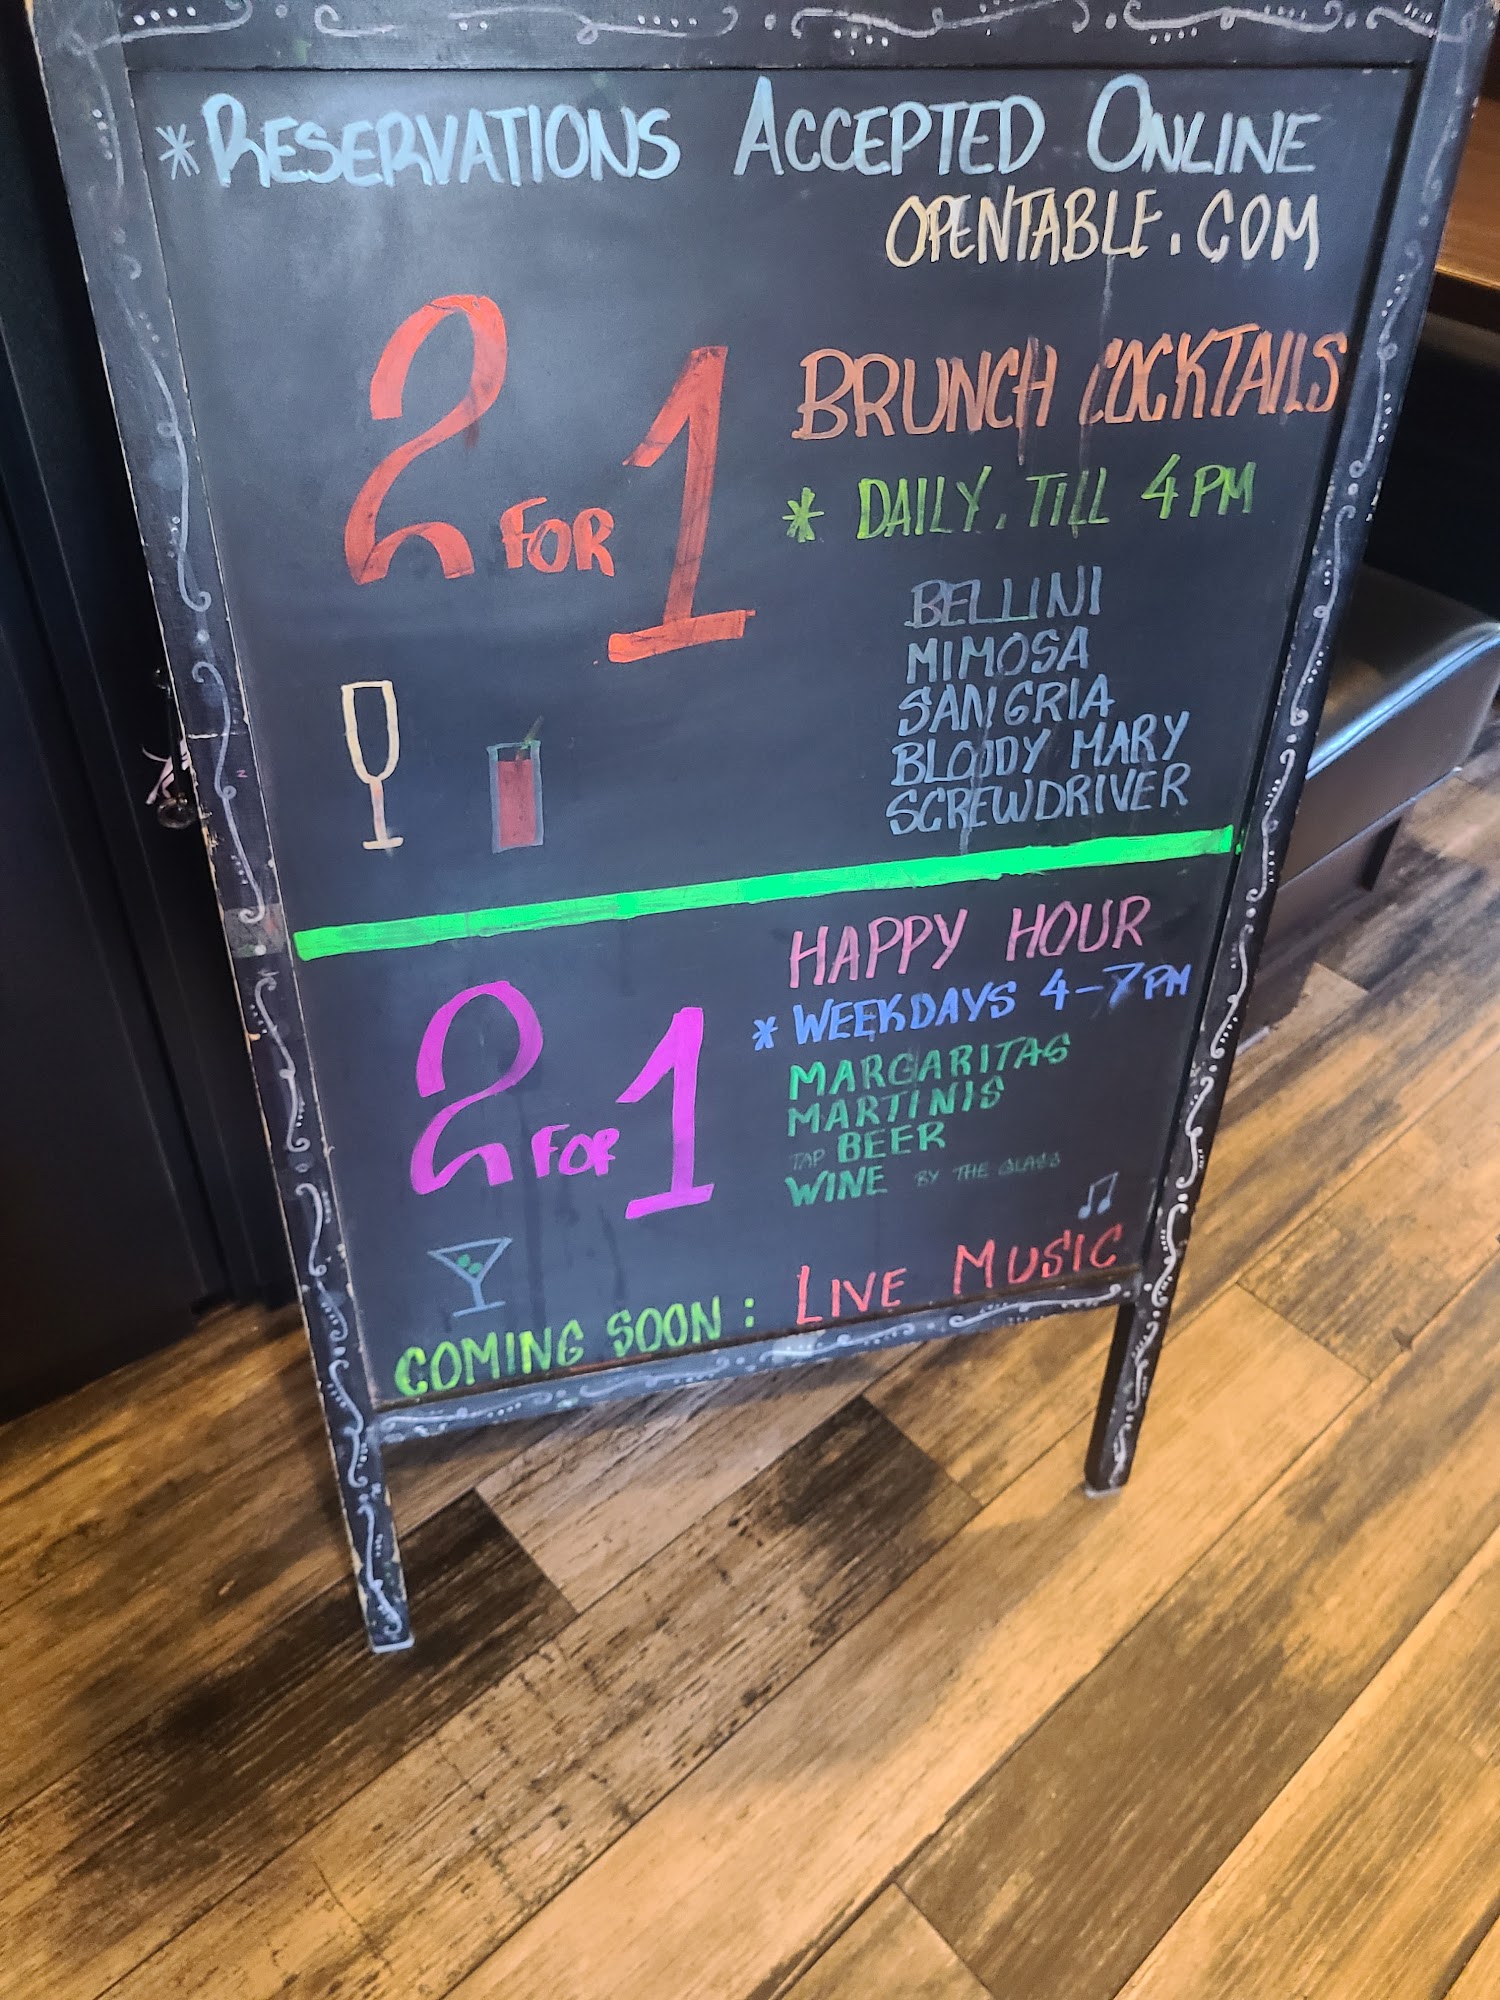 *RESERVATIONS ACCEPTED ONLINE
OPENTABLE.COM
2 FOR 1
BRUNCH COCKTAILS
* DAILY. TILL 4PM
BELLINI
MIMOSA
SANGRIA
BLOODY MARY
SCREWDRIVER
2 FOR 1
HAPPY HOUR
* WEEKDAYS 4-7PM
MARGARITAS
MARTINIS
TAP BEER
WINE BY THE GLASS
COMING SOON: LIVE MUSIC